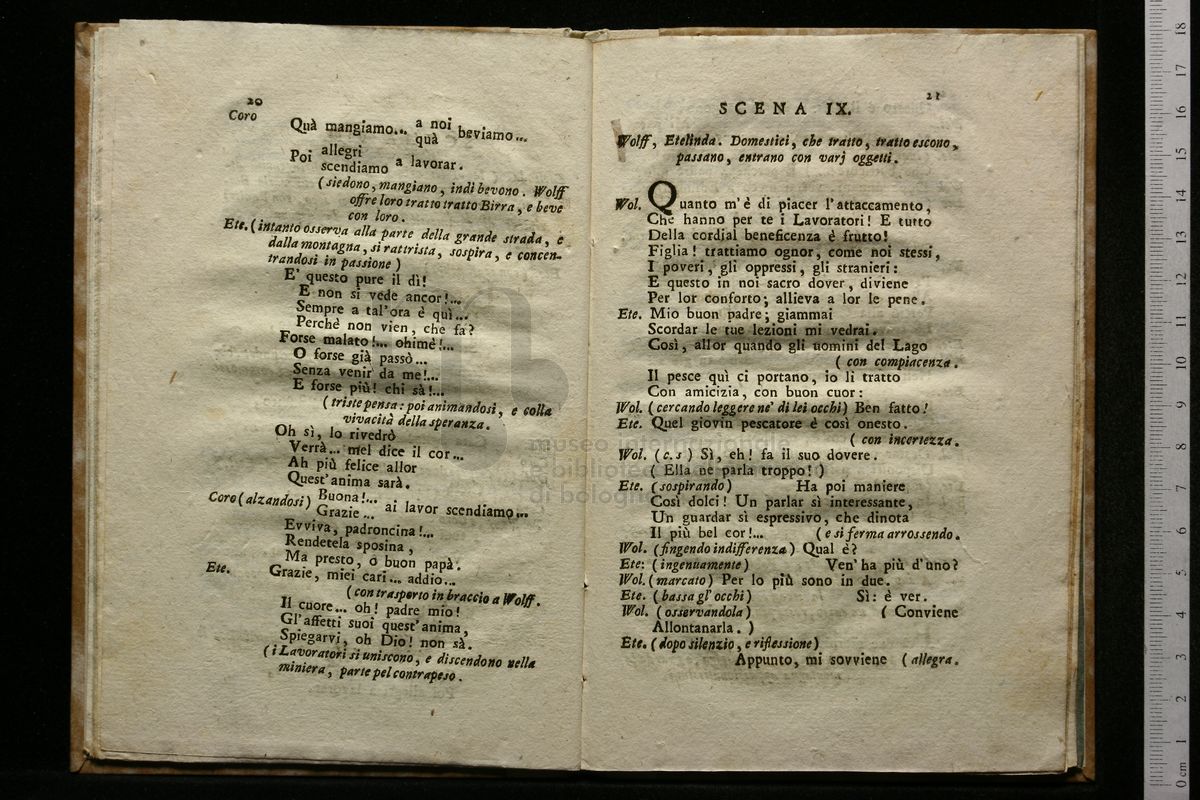 20
Coro
Quà mangiamo... a noi beviamo...
quà
Poi allegri a lavorar.
scendiamo
(siedono, mangiano, indi bevono. Wolff
offre loro tratto tratto Birra, e beve
con loro.
Ete. (intanto osserva alla parte della grande strada, e
dalla montagna, si rattrista, sospira, e concen-
trandosi in passione)
E' questo pure il dì!
E non si vede ancor!...
Sempre a tal'ora è quì...
Perchè non vien, che fa?
Forse malato!... ohimè!...
O forse già passò...
Senza venir da me!...
E forse più! chi sà!...
(triste pensa: poi animandosi, e colla
vivacità della speranza.
Oh sì, lo rivedrò
Verrà... mel dice il cor...
Ah più felice allor
Quest'anima sarà.
Coro (alzandosi) Buona!... ai lavor scendiamo...
Grazie...
Evviva, padroncina!...
Rendetela sposina,
Ma presto, o buon papà.
Ete. Grazie, miei cari... addio...
(con trasporto in braccio a Wolff.
Il cuore... oh! padre mio!
Gl'affetti suoi quest'anima,
Spiegarvi, oh Dio! non sà.
(i Lavoratori si uniscono, e discendono nella
miniera, parte pel contrapeso.
21
SCENA IX.
Wolff, Etelinda. Domestici, che tratto, tratto escono,
passano, entrano con varj oggetti.
Wol. Quanto m'è di piacer l'attaccamento,
Che hanno per te i Lavoratori! E tutto
Della cordial beneficenza è frutto!
Figlia! trattiamo ognor, come noi stessi,
I poveri, gli oppressi, gli stranieri:
E questo in noi sacro dover, diviene
Per lor conforto; allieva a lor le pene.
Ete. Mio buon padre; giammai
Scordar le tue lezioni mi vedrai.
Così, allor quando gli uomini del Lago
(con compiacenza.
Il pesce quì ci portano, io li tratto
Con amicizia, con buon cuor:
Wol. (cercando leggere ne' di lei occhi) Ben fatto!
Ete. Quel giovin pescatore è così onesto.
(con incertezza.
Wol. (c.s) Sì, eh! fa il suo dovere.
(Ella ne parla troppo!)
Ete. (sospirando) Ha poi maniere
Così dolci! Un parlar sì interessante,
Un guardar sì espressivo, che dinota
Il più bel cor!... (e si ferma arrossendo.
Wol. (fingendo indifferenza) Qual è?
Ete: (ingenuamente) Ven' ha più d'uno?
Wol. (marcato) Per lo più sono in due.
Ete. (bassa gl' occhi) Sì: è ver.
Wol. (osservandola) (Conviene
Allontanarla.)
Ete. (dopo silenzio, e riflessione)
Appunto, mi sovviene (allegra.
museo internazionale
e biblioteca
di bologna
0 cm 1 2 3 4 5 6 7 8 9 10 11 12 13 14 15 16 17 18